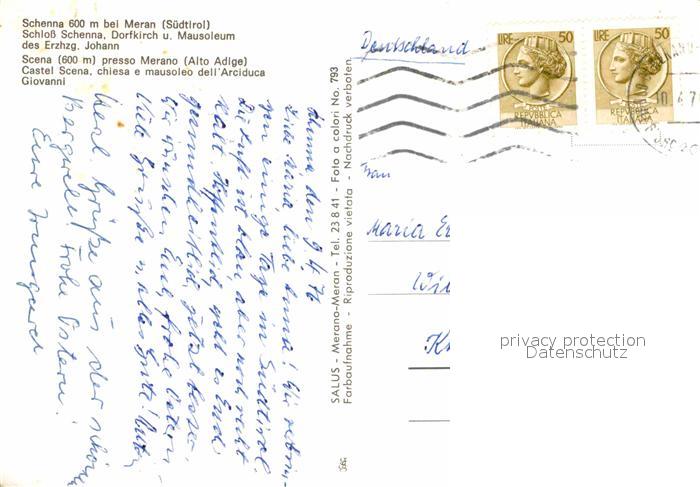 Schenna 600 m bei Meran (Südtirol)
Schloß Schenna, Dorfkirch u. Mausoleum
des Erzhzg. Johann
Scena (600 m) presso Merano (Alto Adige)
Castel Scena, chiesa e mausoleo dell'Arciduca
Giovanni
Schenna, den 9.4.76
Liebe Maria, liebe Anna! Wir verbrin-
gen einige Tage in Südtirol.
Die Luft ist klar, aber noch recht
kalt. Hoffentlich geht es Euch
gesundheitlich jetzt besser.
Wir wünschen Euch frohe Ostern
Viele Grüße u. alles Gute!
Herzl. Grüße aus der schönen
Bergwelt! Frohe Ostern!
Eure Irmgard
SALUS - Merano-Meran - Tel. 23 8 41 - Foto a colori No. 793
Farbaufnahme - Riproduzione vietata - Nachdruck verboten
Deutschland
LIRE 50
POSTE
REPVBBLICA
ITALIANA
LIRE 50
POSTE
REPVBBLICA
ITALIANA
Frau
Maria
privacy protection
Datenschutz